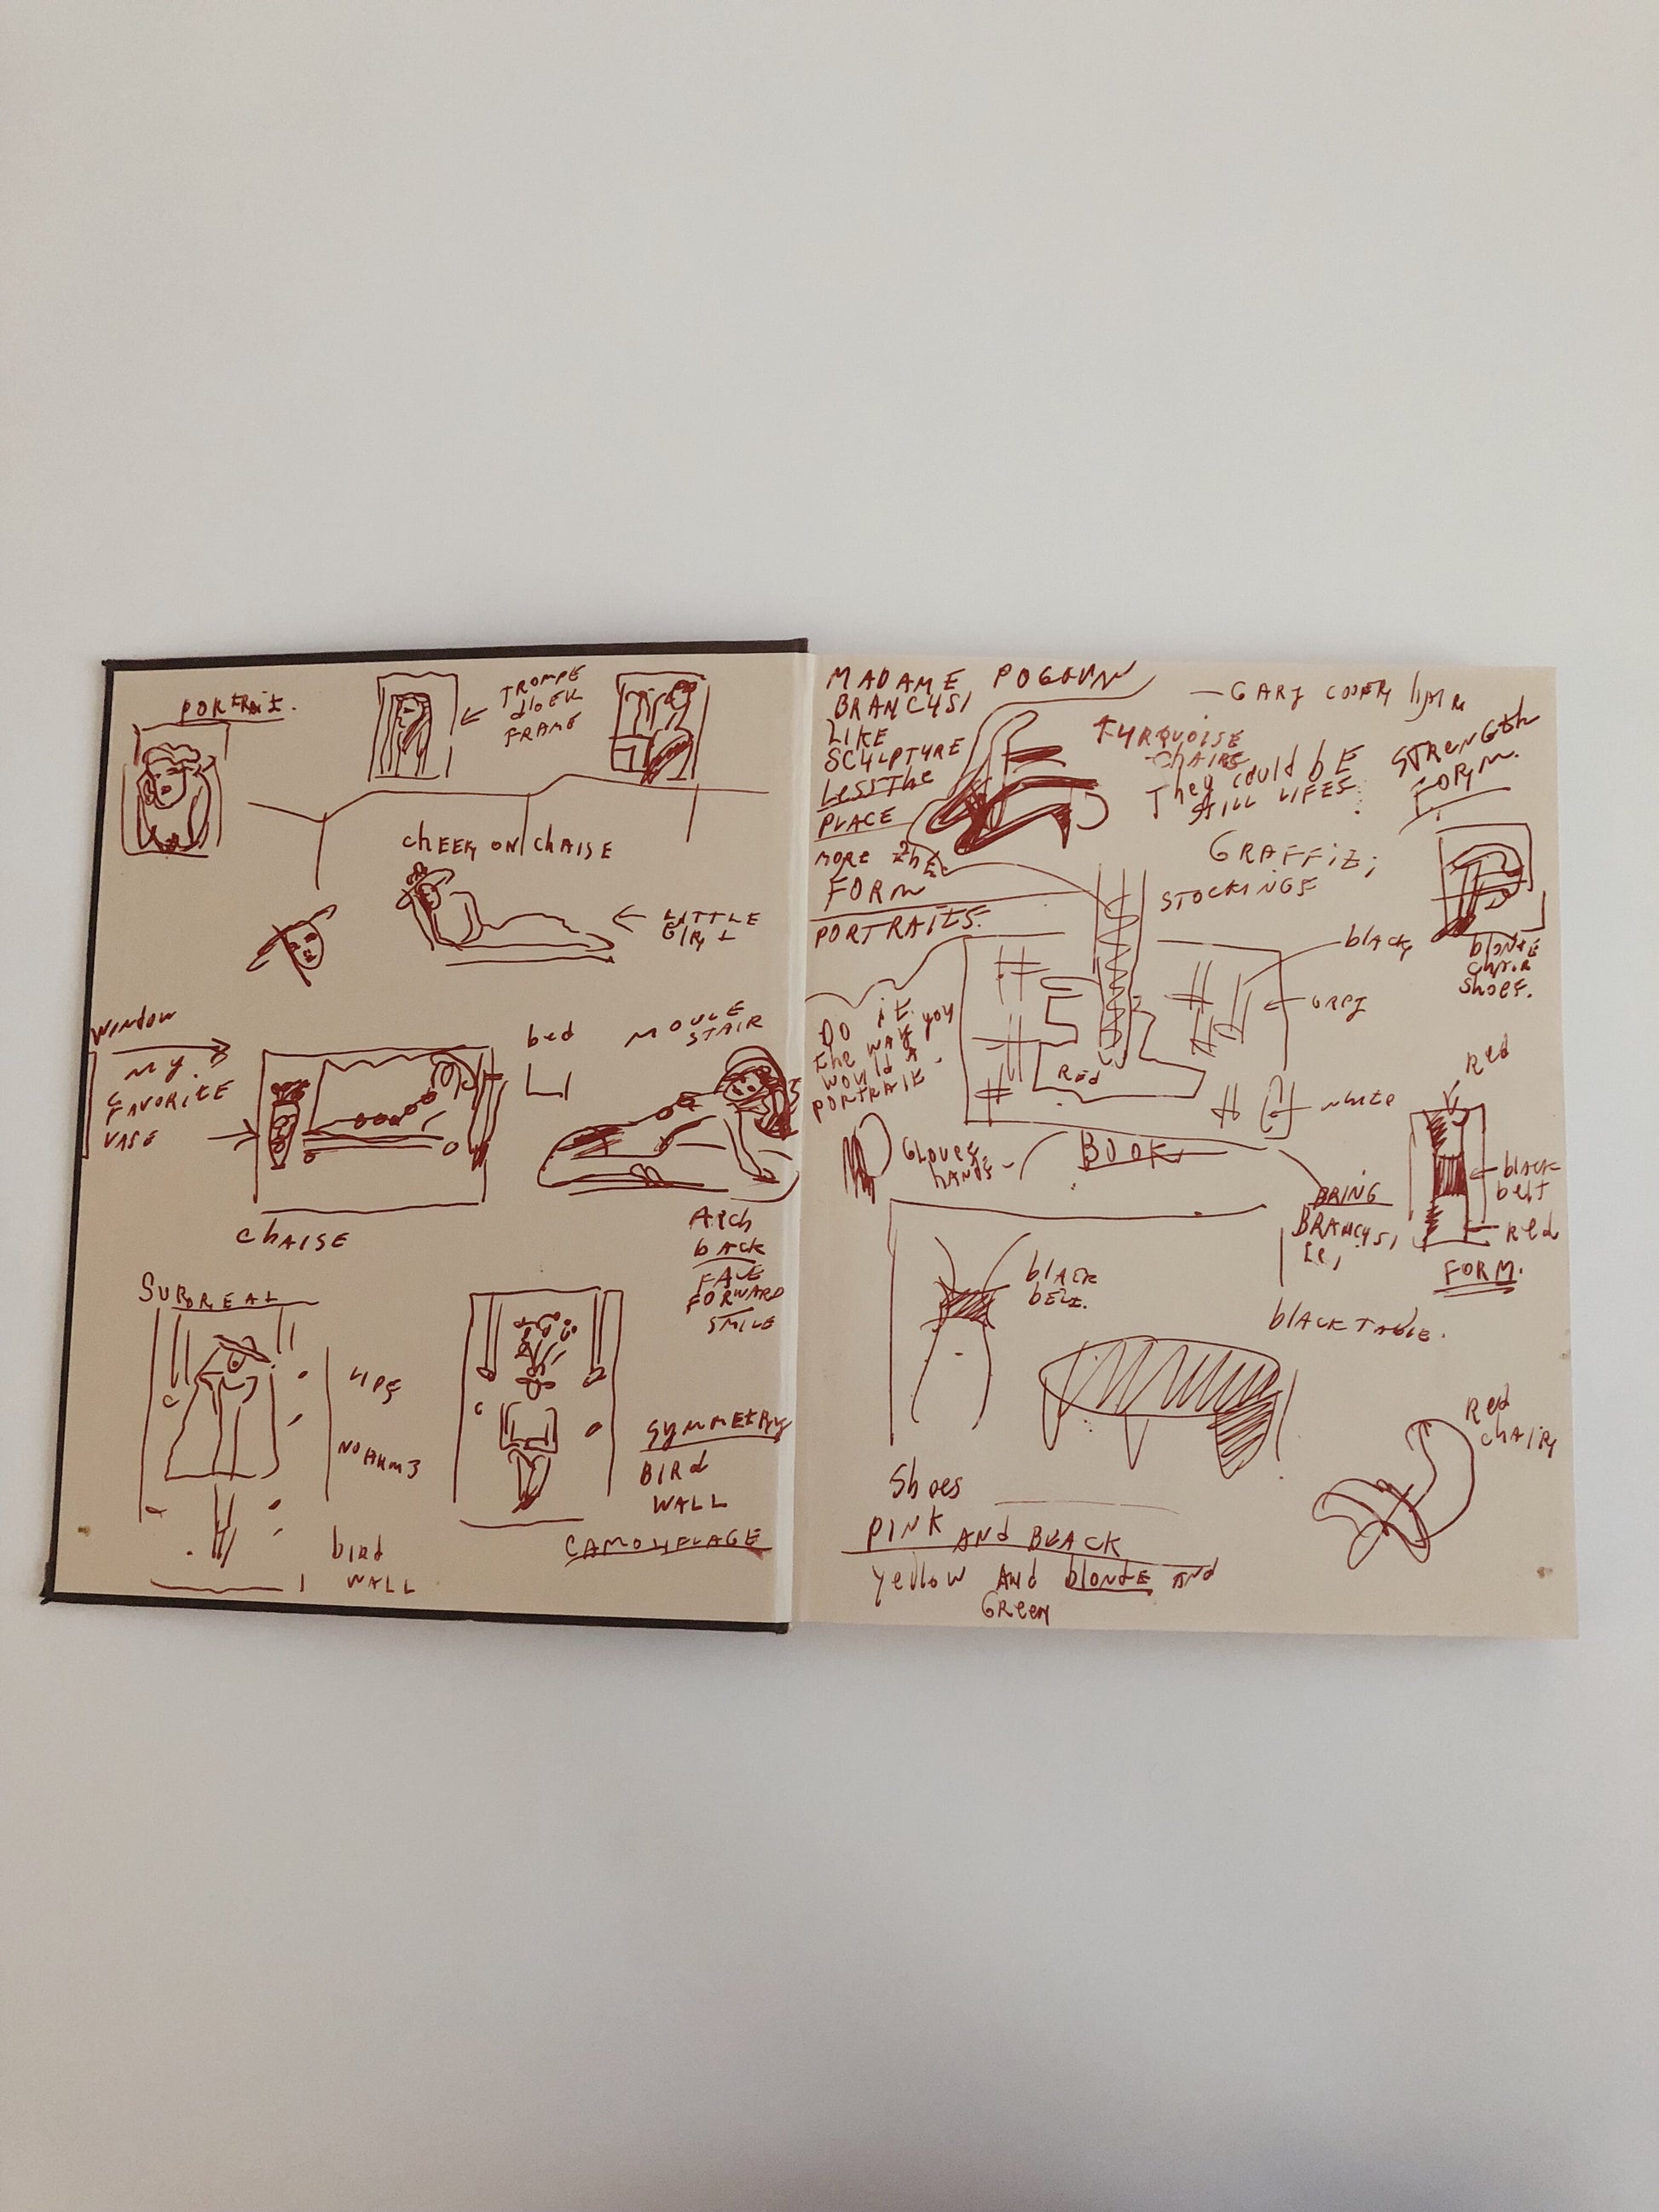 PORTRAIT.
TROMPE
FRAME
CHEEK ON CHAISE
LITTLE
GIRL
WINDOW
MY
FAVORITE
VASE
bed
STAIR
CHAISE
ARCH
BACK
FACE
FORWARD
SMILE
SURREAL
LIPS
NO ARMS
bird
WALL
SYMMETRY
BIRD
WALL
CAMOUFLAGE
MADAME
BRANCUSI
LIKE
SCULPTURE
LESS THE
PLACE
MORE THE
FORM
PORTRAITS.
— GARY COOPER
TURQUOISE
CHAIRS
They could bE
STILL LIFES
STRENGTH
FORM.
GRAFFITI
STOCKINGS
black
GREY
blonde
chair
shoes.
DO it.
the WAY you
would A
PORTRAIT.
RED
white
Red
GLOVES
HANDS -
BOOK
BRING
BRANCUSI
black
belt
Red
FORM.
black
BELT.
black TABLE.
Red
chair
Shoes
PINK AND BLACK
yellow AND blonde AND
GREEN